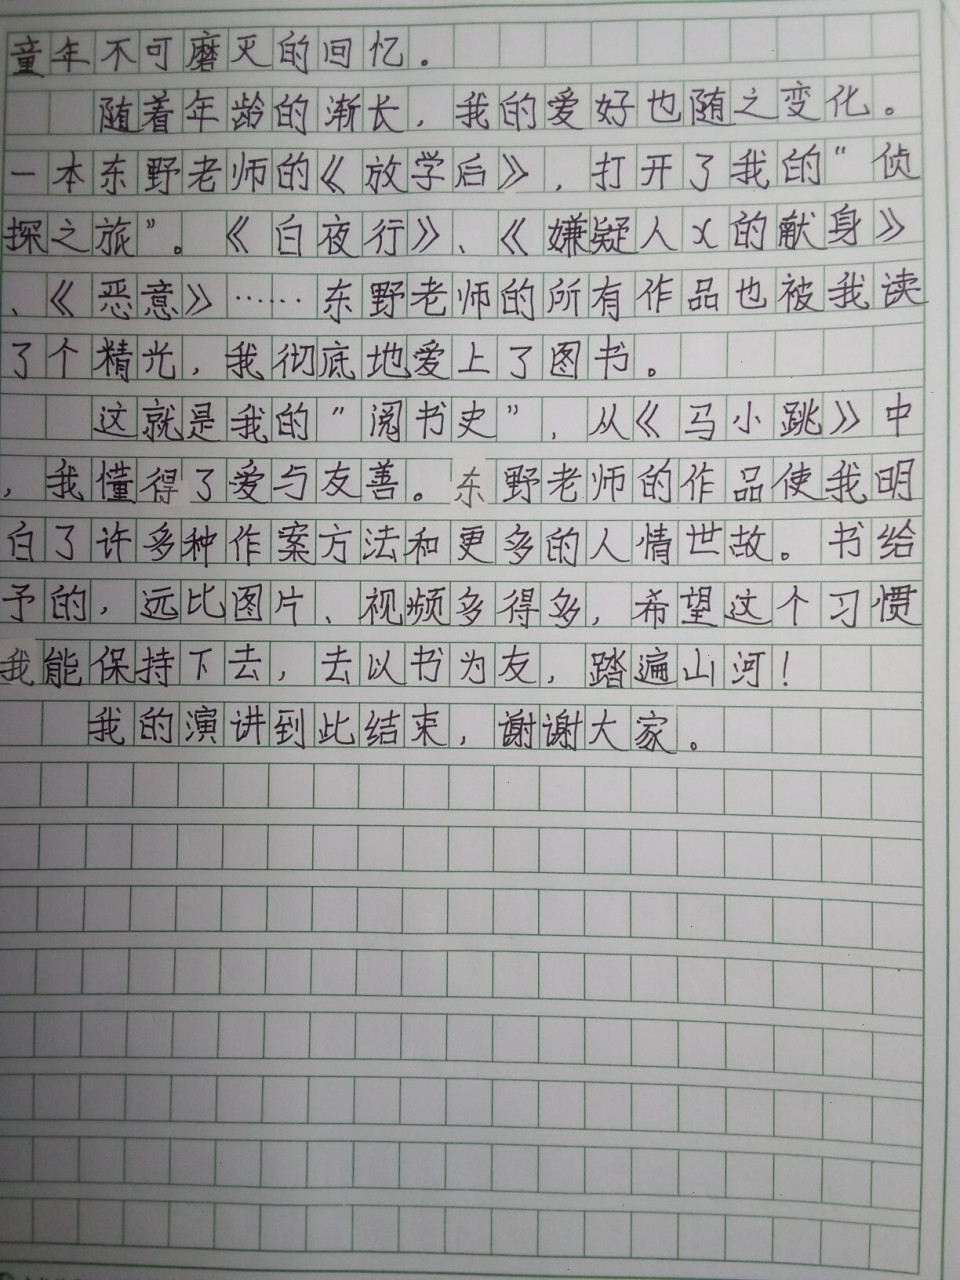 童年不可磨灭的回忆。
随着年龄的渐长，我的爱好也随之变化。
一本东野老师的《放学后》，打开了我的“侦
探之旅”。《白夜行》、《嫌疑人X的献身》
、《恶意》……东野老师的所有作品也被我读
了个精光，我彻底地爱上了图书。
这就是我的“阅书史”，从《马小跳》中
，我懂得了爱与友善。东野老师的作品使我明
白了许多种作案方法和更多的人情世故。书给
予的，远比图片、视频多得多，希望这个习惯
我能保持下去，去以书为友，踏遍山河！
我的演讲到此结束，谢谢大家。